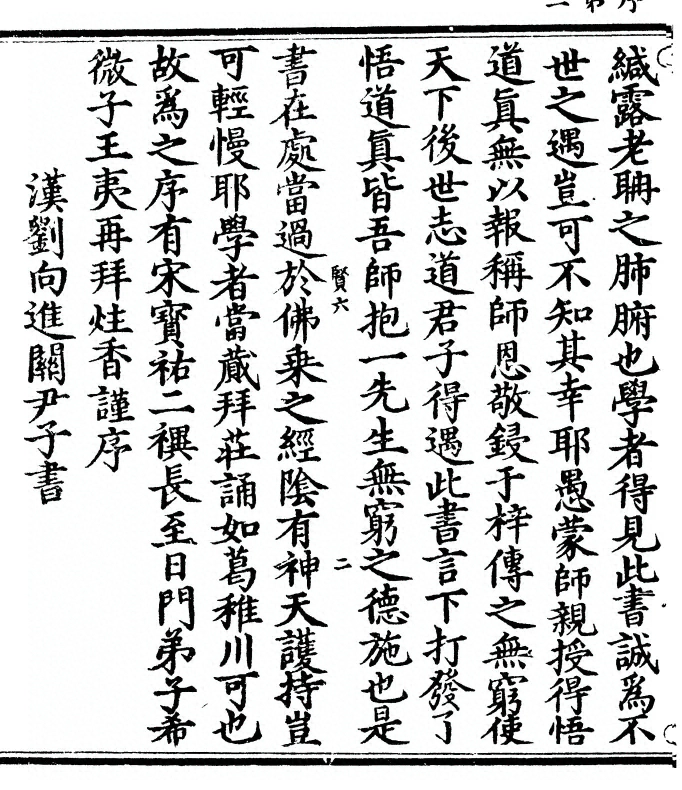 緘露老聃之肺腑也學者得見此書誠爲不
世之遇豈可不知其幸耶愚蒙師親授得悟
道眞無以報稱師恩敬鋟于梓傳之無窮使
天下後世志道君子得遇此書言下打發了
悟道眞皆吾師抱一先生無窮之德施也是
賢六
二
書在處當過於佛乗之經陰有神天護持豈
可輕慢耶學者當蔵拜莊誦如葛稚川可也
故爲之序有宋寳祐二禩長至日門弟子希
微子王夷再拜炷香謹序
漢劉向進關尹子書